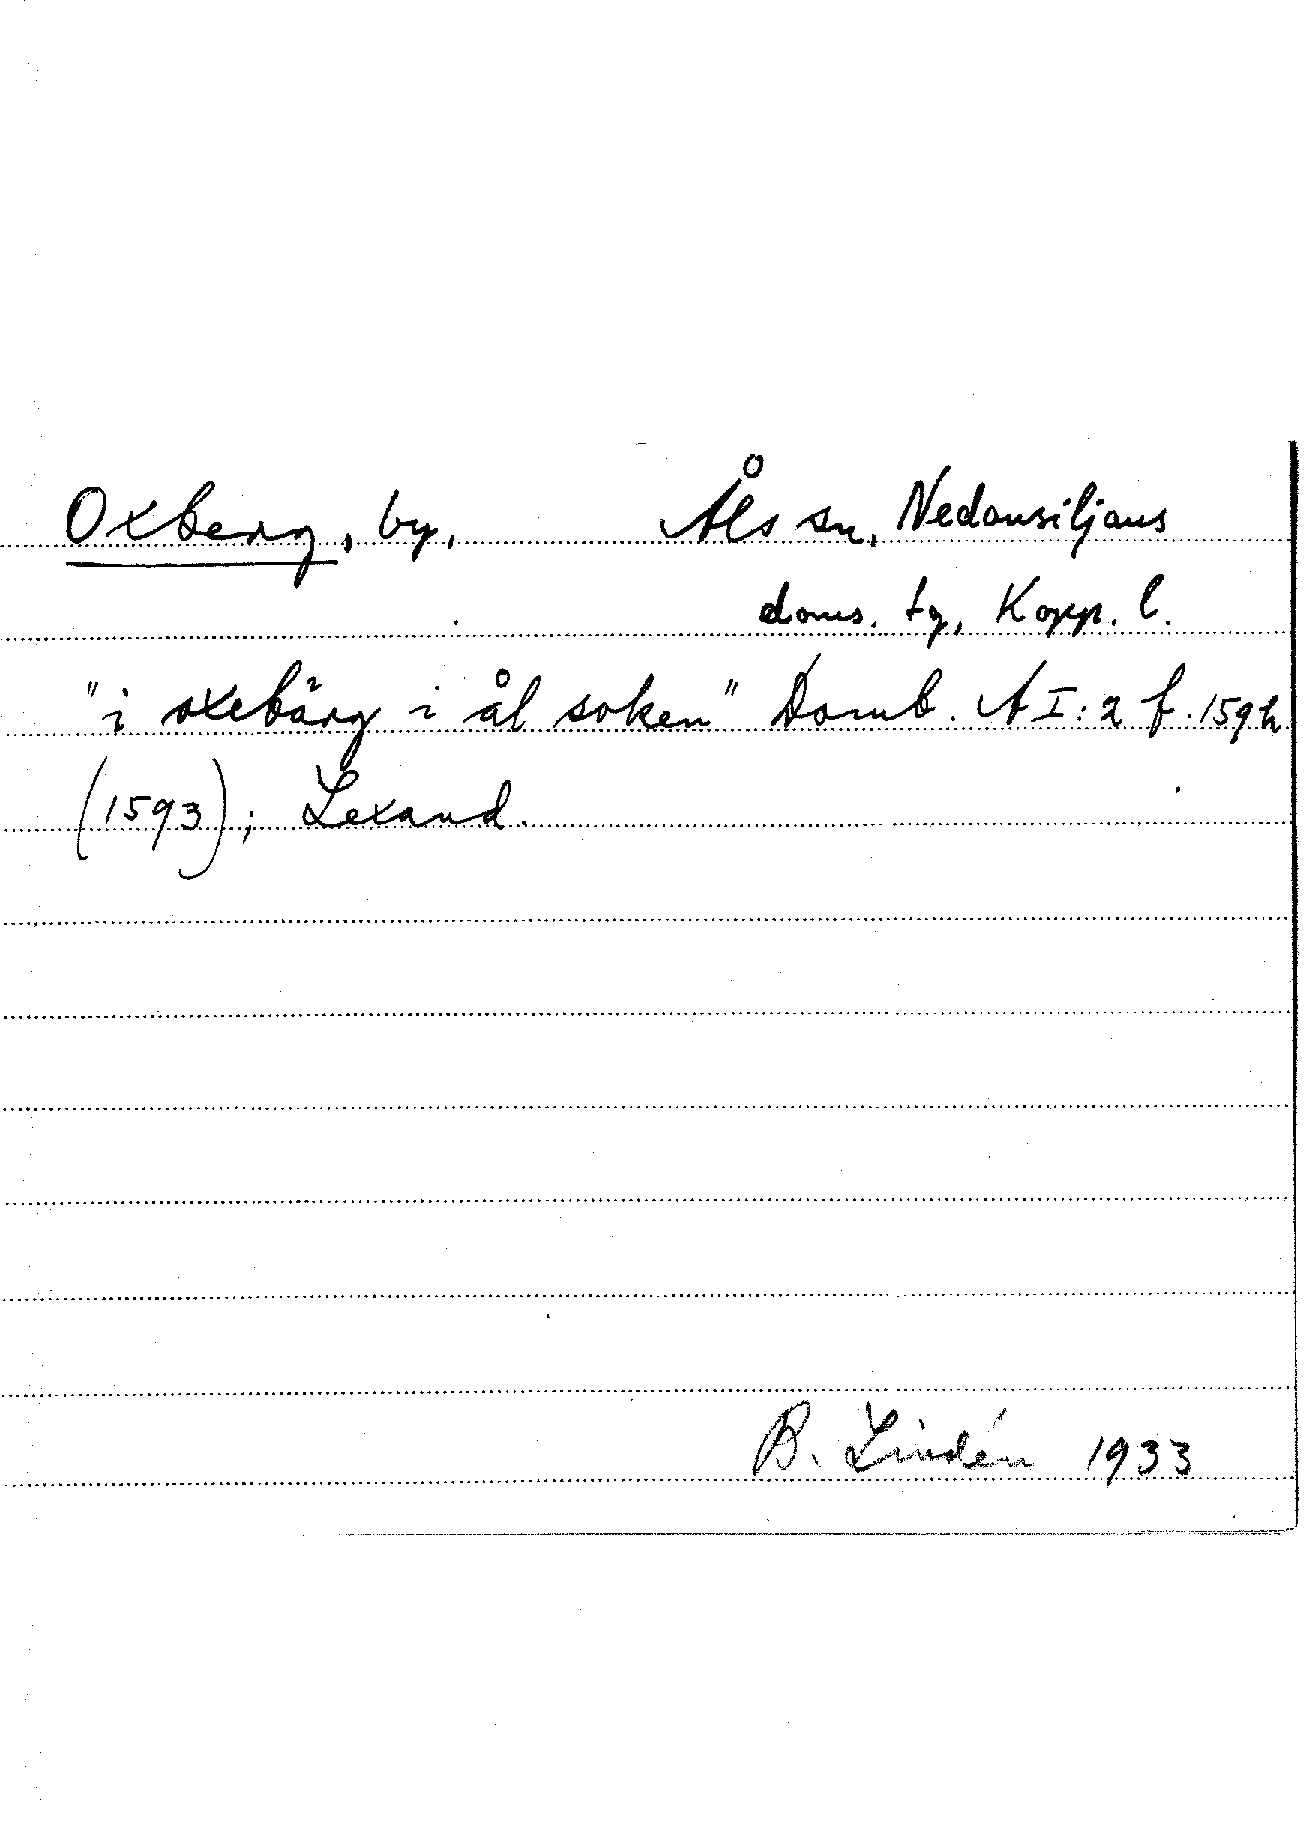 Oxberg, by, Åls sn, Nedansiljans
doms. tg, Kopp. l.
"i oxebärg i ål soken" Domb. A I: 2 f. 159 h
(1593); Lexand.
B. Lindén 1933